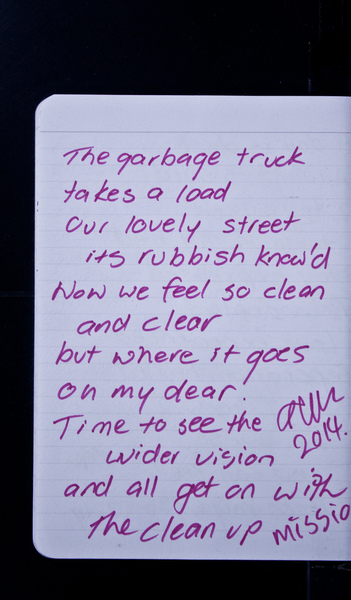 The garbage truck
takes a load
Our lovely street
its rubbish know'd
Now we feel so clean
and clear
but where it goes
oh my dear.
Time to see the
2014.
wider vision
and all get on with
the clean up missio